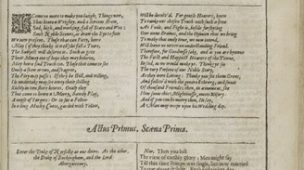 I Come no more to make you laugh, Things now,
That beare a Weighty, and a Serious Brow,
Sad, high, and working, full of State and Woe:
Such Noble Scœnes, as draw the Eye to flow
We now present. Those that can Pitty, heere
May (if they thinke it well) let fall a Teare,
The Subiect will deserue it. Such as giue
Their Money out of hope they may beleeue,
May heere finde Truth too. Those that come to see
Onely a show or two, and so agree,
The Play may passe: If they be still, and willing,
Ile vndertake may see away their shilling
Richly in two short houres. Onely they
That come to heare a Merry, Bawdy Play,
A noyse of Targets: Or to see a Fellow
In a long Motley Coate, garded with Yellow,
Will be deceyu'd. For gentle Hearers, know
To ranke our chosen Truth with such a show
As Foole, and Fight is, beside forfeyting
Our owne Braines, and the Opinion that we bring
To make that onely true, we now intend,
Will leaue vs neuer an vnderstanding Friend.
Therefore, for Goodnesse sake, and as you are knowne
The First and Happiest Hearers of the Towne,
Be sad, as we would make ye. Thinke ye see
The very Persons of our Noble Story,
As they were Liuing: Thinke you see them Great,
And follow'd with the generall throng, and sweat
Of thousand Friends: Then, in a moment, see
How soone this Mightinesse, meets Misery:
And if you can be merry then, Ile say,
A Man may weepe vpon his Wedding day.
Actus Primus. Scœna Prima.
Enter the Duke of Norfolke at one doore. At the other,
the Duke of Buckingham, and the Lord
Aburgauenny.
Nor. Then you lost
The view of earthly glory: Men might say